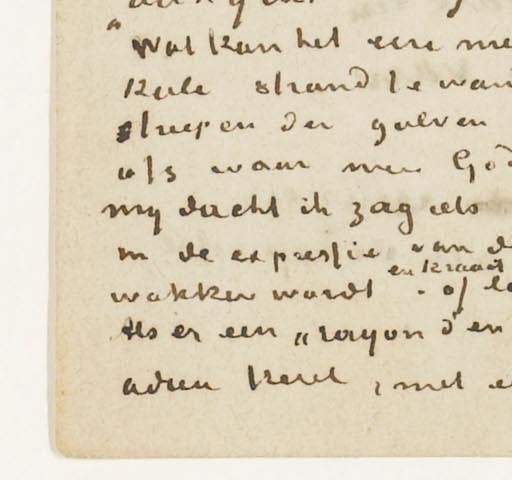 "Wat kan het een me
kale strand te wan
sleepen der golven
als waar men God
my dacht ik zag iets
in de expressie van d
en kraait
wakker wordt . of le
Als er een „rayon d'en
adieu kerel , met e